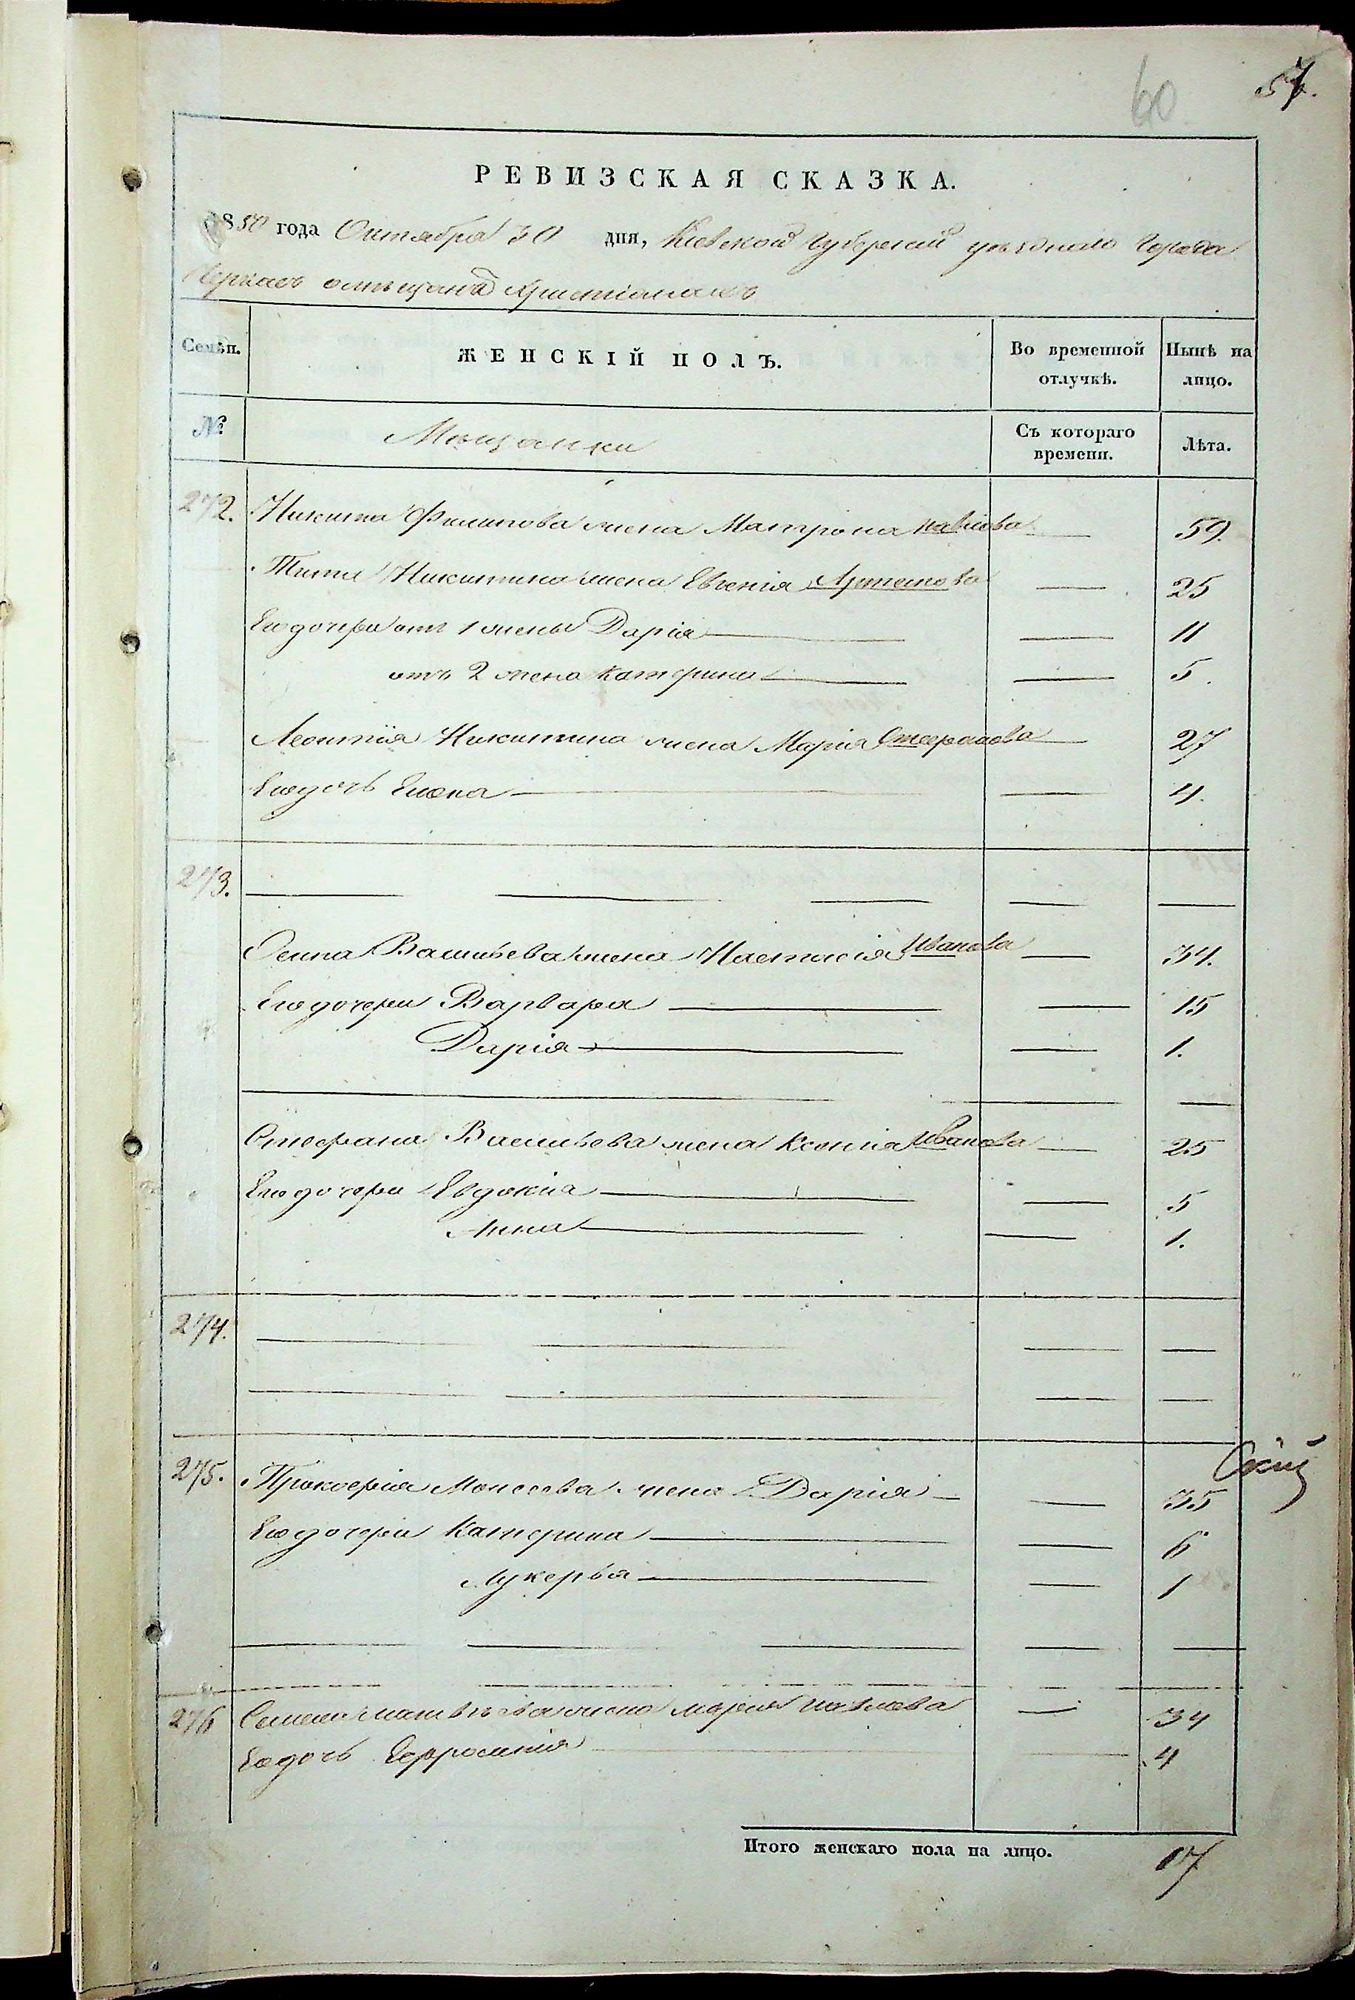 60 57.
РЕВИЗСКАЯ СКАЗКА.
1850 года Октября 30 дня, Кіевской Губерніи уѣзднаго Города
Черкасъ о мѣщанахъ Христіанахъ
Семѣи. ЖЕНСКІЙ ПОЛЪ. Во временной отлучкѣ. Нынѣ на лицо.
№ Мѣщанки Съ котораго времени. Лѣта.
272. Никиты Филипова жена Матрона Павлова 59.
Тита Никитина жена Евгенія Артемова 25
Его дочери отъ 1 жены Дарія 11
отъ 2 жены Катерина 5.
Леонтія Никитина жена Марія Стефанова 27
Его дочь Елена 4.
273.
Осипа Васильева жена Настасія Иванова 34.
Его дочери Варвара 15
Дарія 1.
Стефана Васильева жена Ксенія Иванова 25
Его дочери Евдокія 5
Анна 1.
274.
275. Прокофія Моисеева жена Дарія 35
Его дочери Катерина 6
Лукерья 1
276 Семена Матвѣева жена Марія Павлова 34
Его дочь Ефросинія 4
Итого женскаго пола на лицо. 17